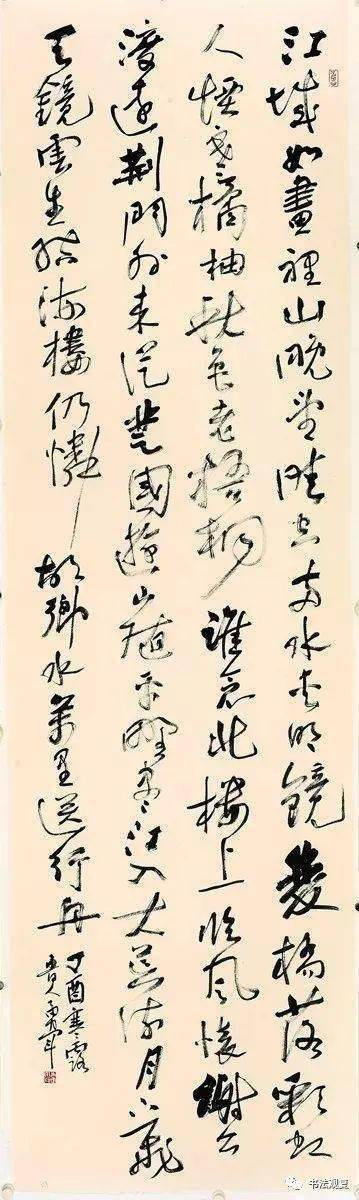 江城如畫裡山晚望晴空兩水夾明鏡雙橋落彩虹
人煙寒橘柚秋色老梧桐誰念北樓上臨風懷謝公
渡遠荊門外來從楚國遊山隨平野盡江入大荒流月下飛
天鏡雲生結海樓仍憐故鄉水萬里送行舟
丁酉寒露
书法观复